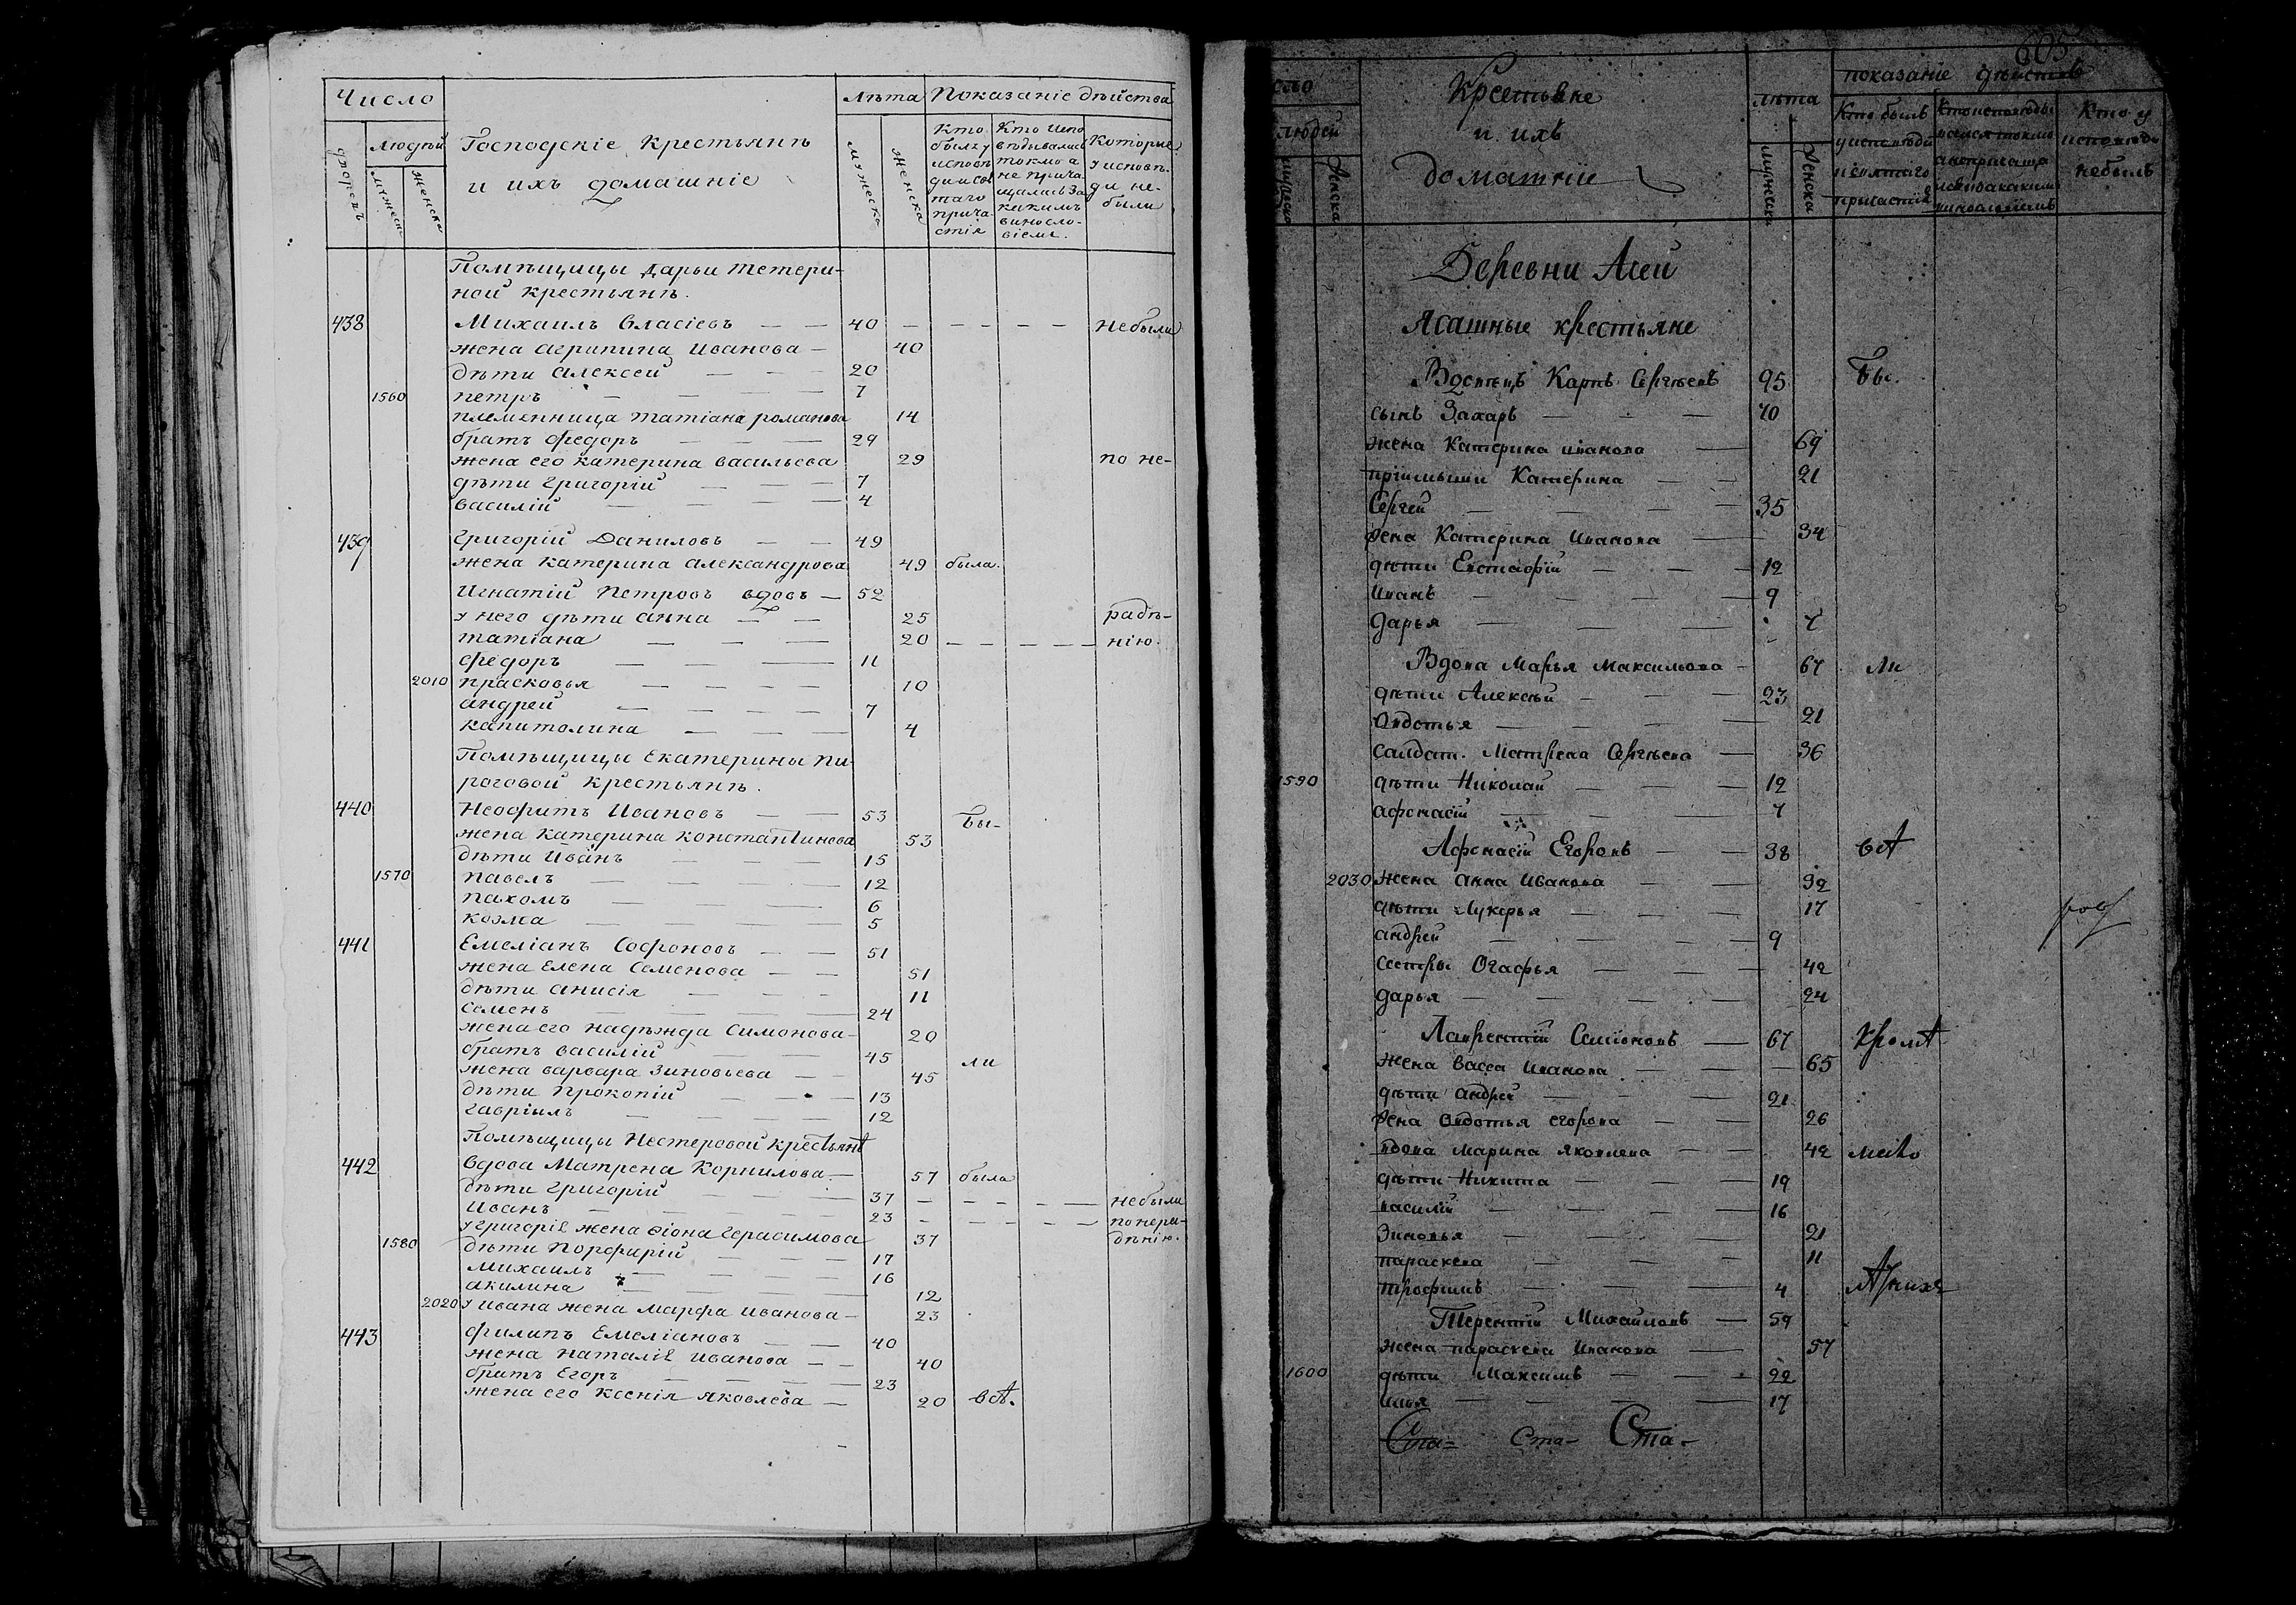 Число
Лѣта Показаніе дѣйства
дворовъ
людѣй
мужеска
женска
Господскіе Крестьянъ
и ихъ домашніе
мужеска
женска
Кто
былъ у
исповѣ
ди и свя
таго
прича
стія
Кто испо
вѣдывался
токмо а
не прича
щался за
какимъ
винослов
віемъ.
Которые
у исповѣ
ди не-
были
Помѣщицы Дарьи Тетери-
ной крестьянъ.
438 Михаилъ Власіевъ — — 40 — — — — — небыли
жена агрипина Иванова — 40
дѣти Алексеи — — — 20
1560 петръ — — — — 7
племянница татіана романова 14
братъ Федоръ — — — 29
жена его катерина васильева 29 по не-
дѣти григорій — — — 7
василій — — — — 4
439 Григорій Даниловъ — — 49
жена катерина александрова 49 была.
Игнатій Петровъ вдовъ — 52
у него дѣти анна — — 25 радѣ-
татіана — — — 20 — — — — — нію.
федоръ — — — 11
2010 прасковья — — — — 10
андрей — — — — 7
капитолина — — — 4
Помѣщицы Екатерины Пи-
роговой крестьянъ.
440 Неофитъ Ивановъ — — 53 бы-
жена катерина константинова 53
дѣти Иванъ — — — 15
1570 павелъ — — — — 12
пахомъ — — — 6
козма — — — 5
441 Емеліанъ Софоновъ — — 51
жена Елена Семенова — — 51
дѣти анисія — — — 11
семенъ — — — — 24
жена его надѣжда Симонова — 20
братъ василій — — — 45 ли
жена варвара Зиновьева — — 45
дѣти Прокопій — — — 13
гавріилъ — — — 12
Помѣщицы Нестеровой крестьянъ
442 вдова Матрена Корнилова — 57 была
дѣти григорій — — 37 — — — — — небыли
Иванъ — — — — 23 — — — — — понера-
у григорія жена Фіона Герасимова 37 дѣнію.
1580 дѣти Порфирій — — 17
михаилъ — — — 16
акилина — — 12
2020 у ивана жена марфа иванова — 23
443 Филипъ Емеліановъ — — 40
жена Наталія Иванова — — 40
братъ Егоръ — — — — 23
жена его Ксенія Яковлева — 20 всѣ.
605
сло
людей
мужеска
женска
Крестьяне
и ихъ
домашніи
лѣта
мужеска
женска
показаніе дѣйствъ
Кто былъ
у исповѣди
и святаго
причастія
Кто у
исповѣди
небылъ
Деревни Асей
Ясашные крестьяне
Вдовецъ Карпъ Сергѣевъ 95 бы.
сынъ Захаръ — — — 70
жена Катерина иванова — 69
пріимыши Катерина — — 21
Сергей — — — — 35
жена Катерина Иванова — 34
дѣти Евстафій — — — 12
Иванъ — — — — 9
дарья — — — 7
Вдова Марья Максимова — 67 ли
дѣти Алексѣй — — — 23
Овдотья — — — 21
Салдат. Матрена Сергѣева — 36
1590 дѣти Николай — — — 12
афонасій — — — 7
Афонасій Егоровъ — — 38 всѣ
2030 жена анна Иванова — — 32
дѣти Лукерья — — — 17
андрей — — — — 9
сестры Огафья — — — 42
дарья — — — — 24
Лаврентій Семіоновъ — 67 кромѣ
жена Васса Иванова — — — 65
дѣти андрей — — — 21
жена овдотья егорова — — 26
вдова марина яковлева — — 42
дѣти Никита — — — 19
василій — — — — 16
Зиновья — — — 21
параскева — — — 11
трофимъ — — — 4
Терентій Михайловъ — 59
жена параскева Иванова — 57
1600 дѣти Максимъ — — — 22
илья — — — — 17
Ста- Ста- Ста-